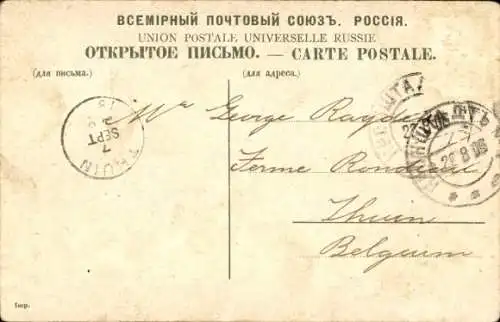 ВСЕМІРНЫЙ ПОЧТОВЫЙ СОЮЗЪ. РОССІЯ.
UNION POSTALE UNIVERSELLE RUSSIE
ОТКРЫТОЕ ПИСЬМО. — CARTE POSTALE.
(для письма.) (для адреса.)
THUIN
7
SEPT
КРОНШТАДТЪ
22 8 06
Mr George
Ferme Rondeau
Thuin
Belgium
Imp.